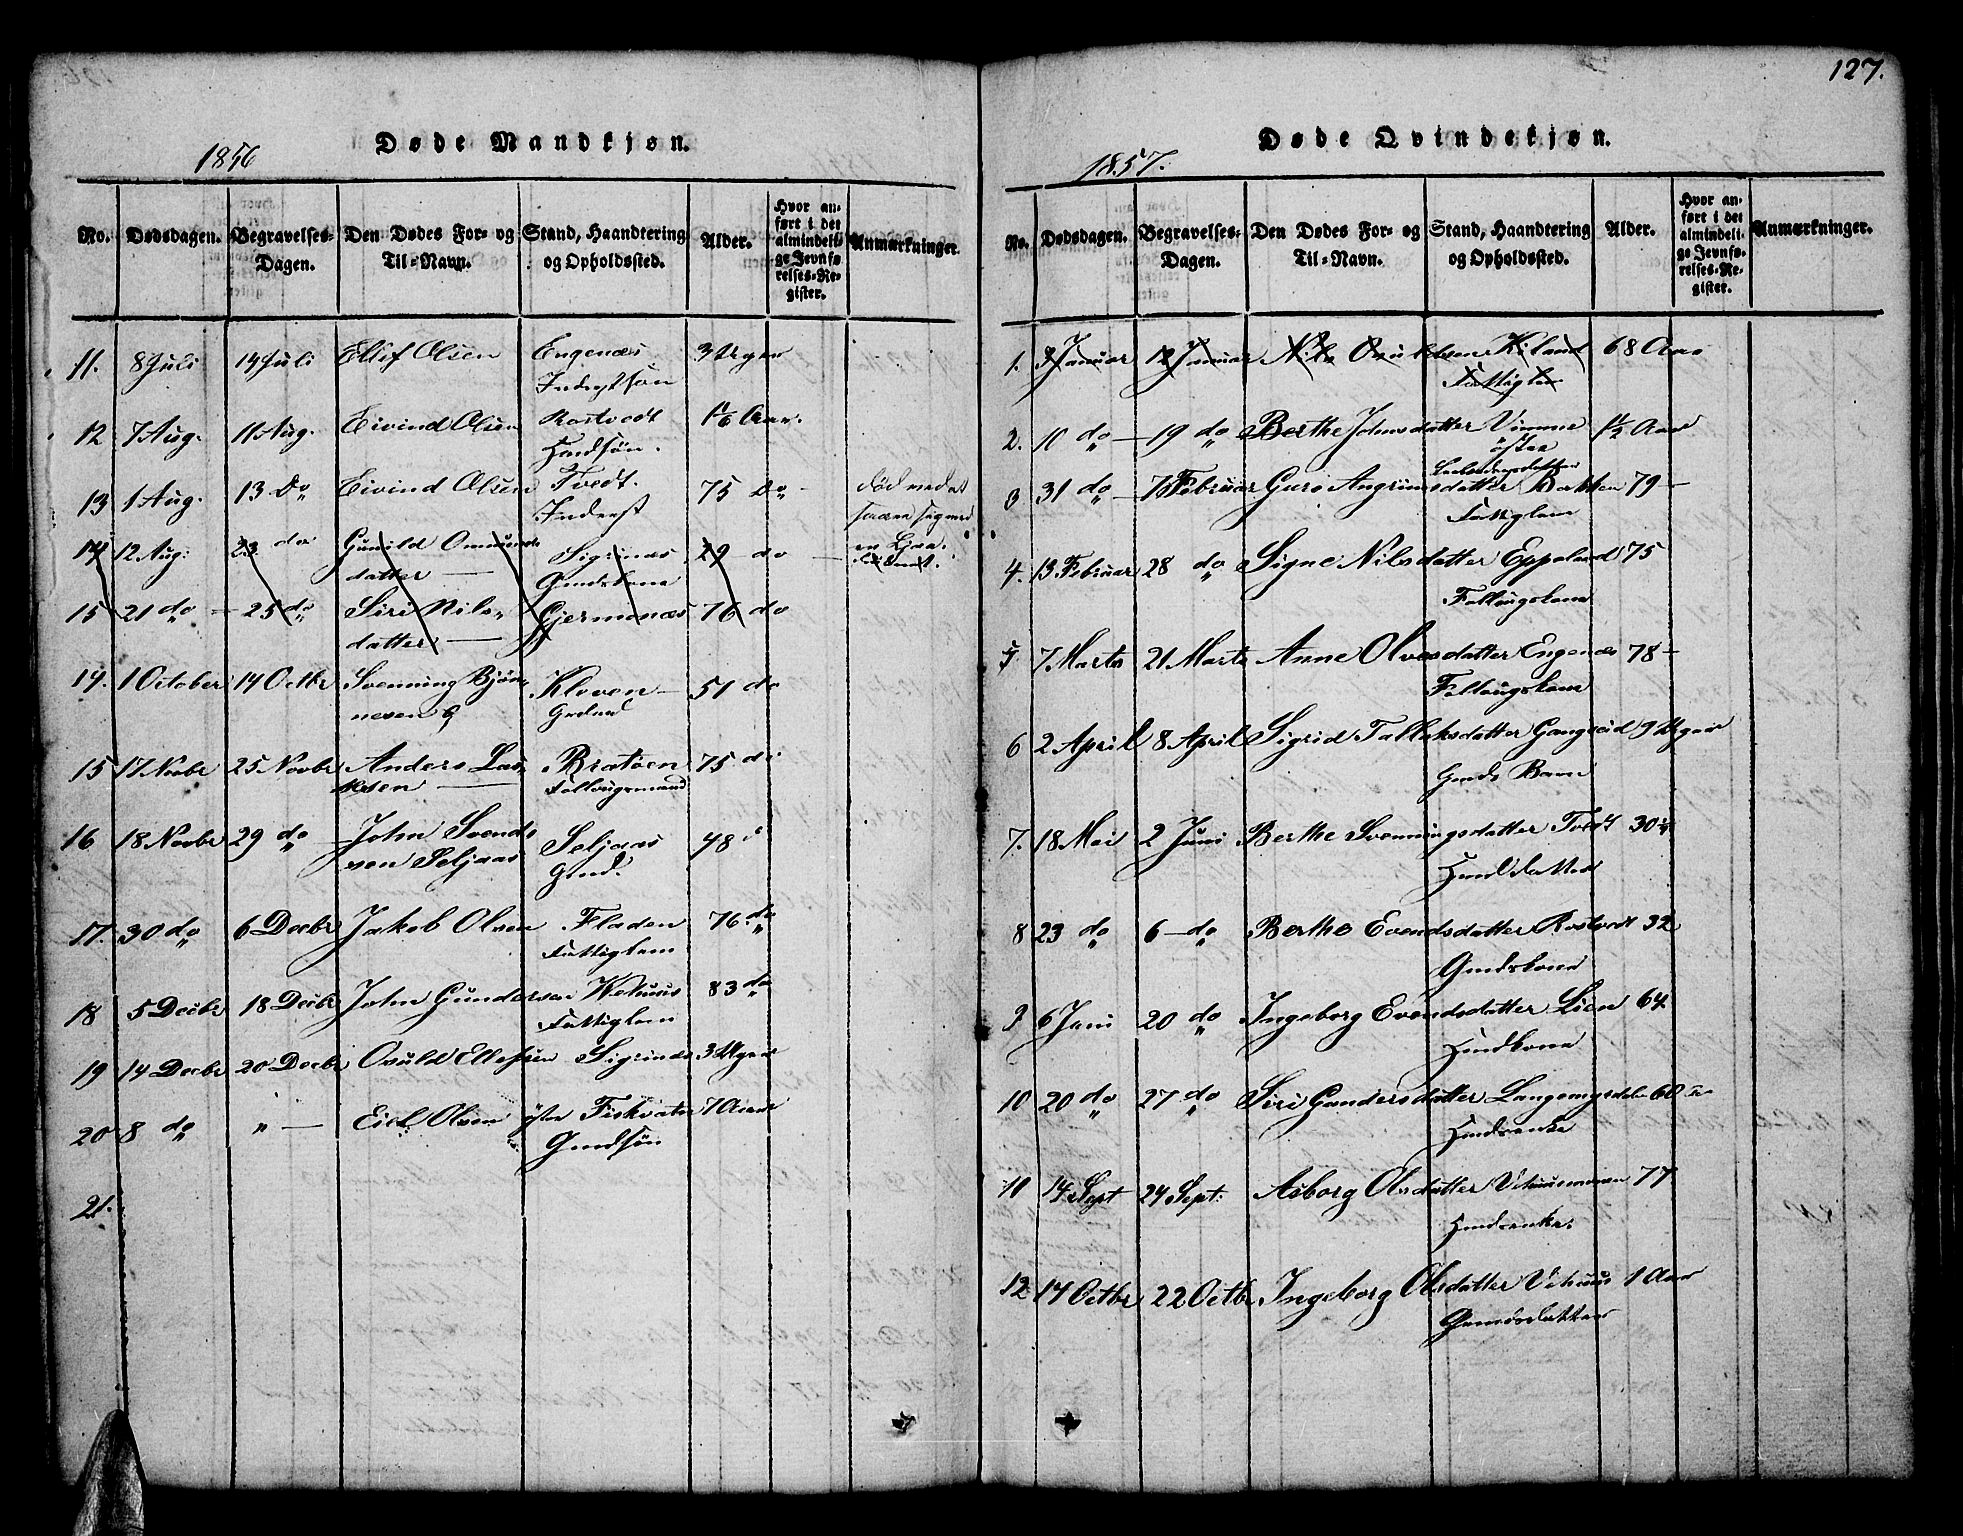 127.
Døde Mandkjøn.
1856
No.
Dødsdagen.
Begravelses-Dagen.
Den Dødes For- og Til-Navn.
Stand, Haandtering og Opholdssted.
Alder.
Hvor anført i det almindelige Jevnførelses-Register.
Anmærkninger
11. 8 Juli 14 Juli Ellef Olsen Engenæs 3 Uger
Inderstsøn
12 7 Aug. 11 Aug. Eivind Olsen Rostvedt 1 1/6 Aar.
Huusdsøn.
13 1 Aug. 13 Do Eivind Olsen Tvedt. 75 Do
Inderst
død ved at
en Ljaa
14 12 Aug: 23 do Gunild Omunds- Sigrinæs 29 do
datter Gmdskone
15 21 do 25 do Siri Nils- Gjermonæs 76 do
datter
14. 1 October 14 Octbr Svenning Bjøn- Kloven 51 do
nesen Grdmd
15 17 Novbr 25 Novbr Anders Las- Bratøen 75 do
sesen Follougsmand
16 18 Novbr 29 do John Svend- Seljaas 48
sen Seljaas Gmd.
17. 30 do 6 Decbr Jakob Olsen Fladen 76 do
Fattiglem
18 5 Decbr 18 Decbr John Gunderson Wehuus 83 do
Fattiglem
19 14 Decbr 20 Decbr Osuld Ellefsen Sigrinæs 3 Uger
20 8 do " — Eiel. Olsen øster Fiskvatn 7 Aar
Gmdsøn
21.
Døde Qvindekjøn.
1857.
No.
Dødsdagen.
Begravelses-Dagen.
Den Dødes For- og Til-Navn.
Stand, Haandtering og Opholdssted.
Alder.
Hvor anført i det almindelige Jevnførelses-Register.
Anmærkninger.
1. 3 Januar 12 Januar Nils Osuldsen Kiland 68 Aar
Fattiglem
2. 10 do 19 do Berthe Johnsdatter Vimme 1 1/2 Aar
østre
3 31 do 7 Februar Guro Angrimsdatter Bakken 79 —
Fattiglem
4. 13 Februar 28 do Signe Nilsdatter Eppeland 75
Follougskone
5 7. Marts 21 Marts Anne Olvesdatter Engenæs 78 —
Follougskone
6 2 April 8 April Sigrid Tallaksdatter Gangseid 9 Uger
Gmds Barn
7. 18 Mai 2 Juni Berthe Svenningsdatter Tvedt 30
Huusdatter
8 23 do 6 do Berthe Evendsdatter Rostvedt 32
Gmdskone
9 6 Juni 20 do Ingeborg Evendsdatter Lien 64
Huuskone
10 20 do 27 do Siri Gundersdatter Langemyrdalen 60
Huusenke
11 14 Sept 24 Sept: Asborg Olsdatter Vehuusmoen 77
Huusenke.
12 14 Octbr 22 Octbr. Ingeborg Olsdatter Vehuus 1 Aar
Gmdsdatter